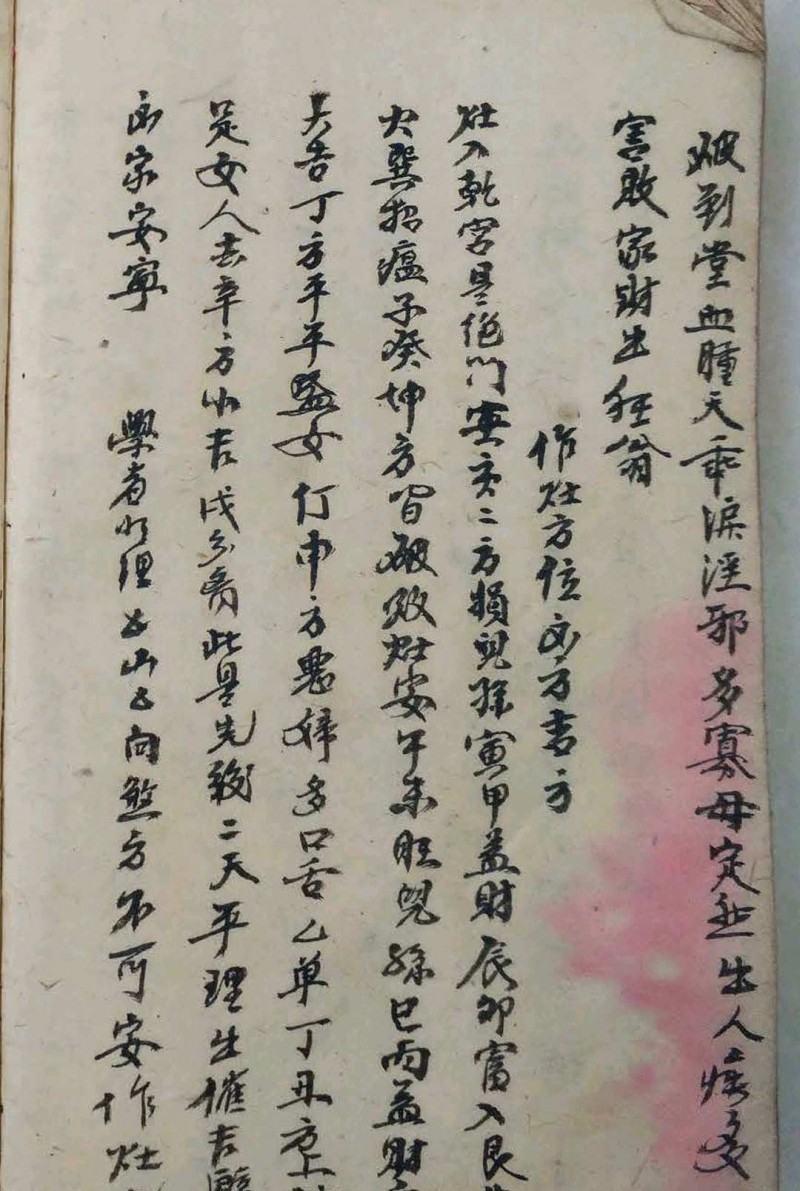 到堂血瞳天乖淚淫邪多寡母定然生人痰多
害敗家財出狂翁
作灶方位凶方吉方
灶入乾宮是絕門寅亥二方損兒孫寅甲益財辰卯富入艮
火巽招瘟子癸坤方皆破敗灶安午未旺兒孫巳丙益財
大吉丁方平平益女仃申方惡婦多口舌乙单丁丑
是女人去辛方小吉戌此是先後二天平理生催吉
凶家安寧 學者明理山向煞方不可安作灶